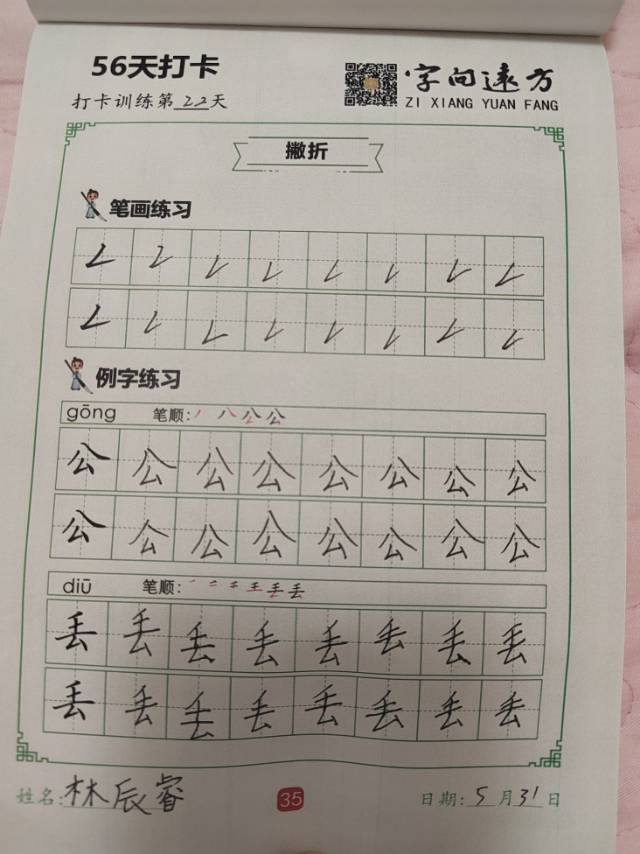 56天打卡
字向远方
打卡训练第22天
ZI XIANG YUAN FANG
撇折
笔画练习
例字练习
gōng 笔顺: 丿 八 公 公
公 公 公 公 公 公 公 公
公 公 公 公 公 公 公 公
diū 笔顺: 一 二 千 王 丢 丢
丢 丢 丢 丢 丢 丢 丢 丢
丢 丢 丢 丢 丢 丢 丢 丢
姓名:林辰睿
35
日期:5月31日